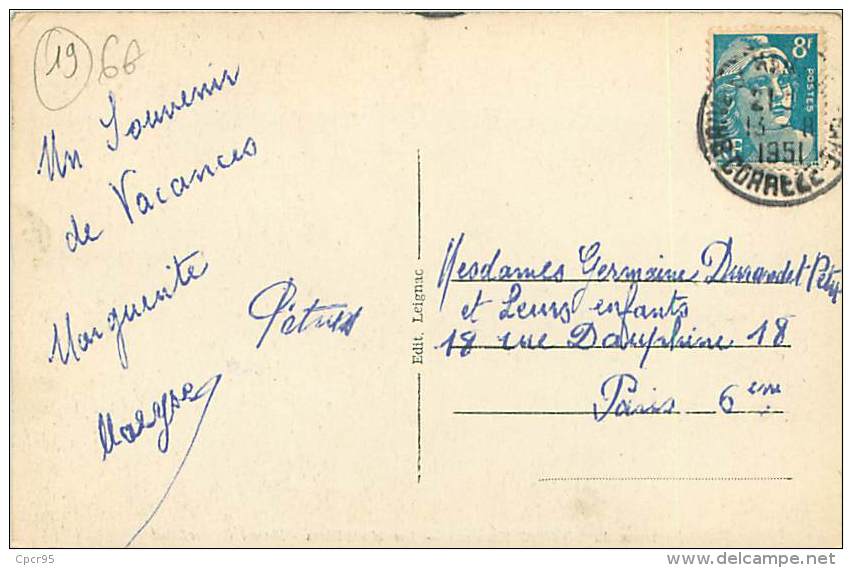 19 66
Un Souvenir
de Vacances
Marguerite
Pétrus
Maryse
Edit. Leignac
8F
POSTES
RF
21
13 - 8
1951
CORREZE
Mesdames Germaine Durandet-Pétrus
et Leurs enfants
18 rue Dauphine 18
Paris 6ème
Cpcr95
www.delcampe.net